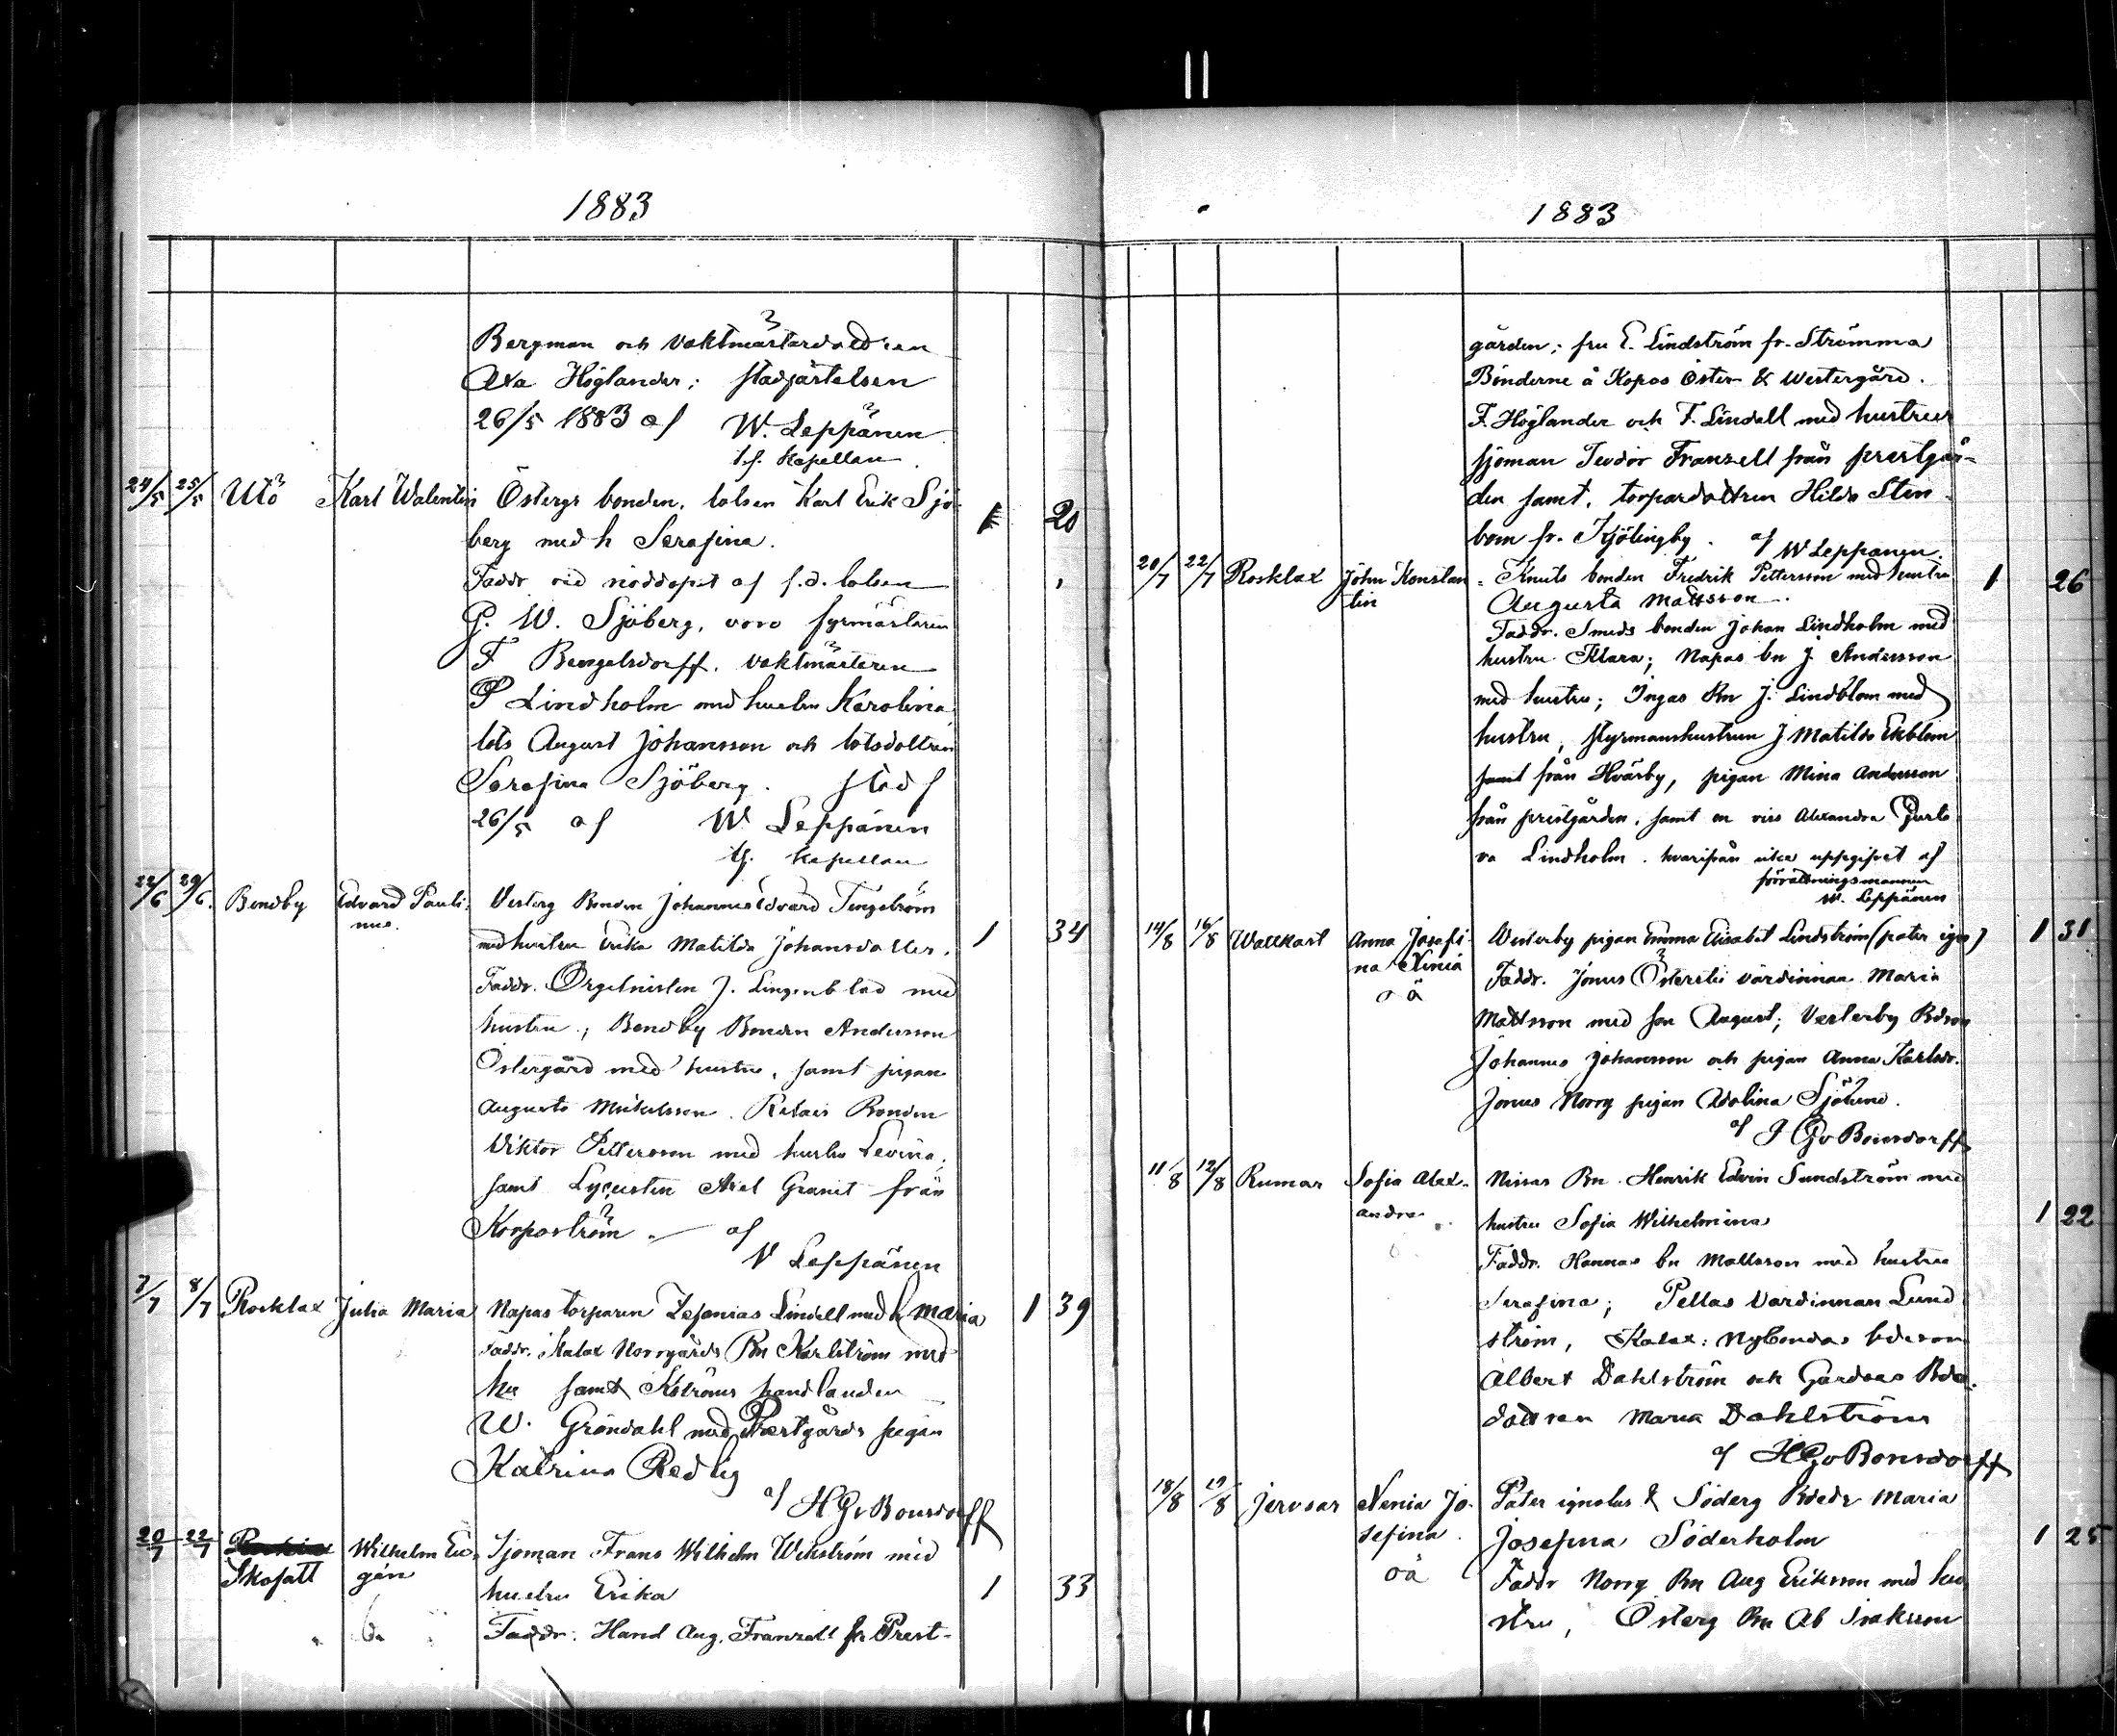 1883
Bergman och vaktmästardottren
Axa Höglander; stadfästelsen
26/5 1883 af W. Leppänen
tf. Kapellan
24/5 25/5 Utö Karl Walentin Östergs bonden, lotsen Karl Erik Sjö-
berg med h Serafina. 1 20
Faddr vid nöddopet af f.d. lotsen
G. W. Sjöberg, voro fyrmästaren
F Bengelsdorff, vaktmästeren
P Lindholm med hustru Karolina,
lots August Johansson och lotsdottren
Serafina Sjöberg. stadf
26/5 af W. Leppänen
tf. Kapellan
22/6 29/6 Bendby Edvard Pauli- Vesterg Bonden Johannes Edvard Tengström
nus. med hustru Erika Matilda Johansdotter. 1 34
Faddr. Orgelnisten J. Lingenblad med
hustru; Bendby Bonden Andersson
Östergård med hustru, samt pigan
Augusta Mickelsson. Retais Bonden
Viktor Pettersson med hustru Levina,
samt Lyceisten Axel Granit från
Korpoström — af
W Leppänen
7/7 8/7 Rosklax Julia Maria Napas torparen Zefanias Lindell med h Maria 1 39
Faddr. Kalax Norrgårds Bn Karlström med
hu samt Kströms handlanden
W. Gröndahl med Prestgårds pigan
Katrina Redlig
af H G v Bonsdorff
20/7 22/7 Skofatt Wilhelm Eu- Sjöman Frans Wilhelm Wikström med
gén hustru Erika 1 33
Faddr. Hand Aug. Franzell fr Prest-
1883
gården; fru E. Lindström fr. Strömma
Bönderne å Kopas Öster & Westergård.
F. Höglander och F. Lindell med hustrur
sjöman Teodor Franzell från prestgår-
den samt. torpardottren Hilda Sten-
bom fr. Kjölingby. af W Leppänen.
20/7 22/7 Rosklax John Konstan- Knuts bonden Fredrik Pettersson med hustru 1 26
tin Augusta Mattsson.
Faddr. Smeds bonden Johan Lindholm med
hustru Klara; Napas bn J. Andersson
med hustru; Ingas Bn J. Lindblom med
hustru, styrmanshustrun J Matilda Ekblom
samt från Hvärby, pigan Mina Andersson
från prestgården, samt en viss Alexandra
Lindholm. hvarifrån icke uppgifvet af
förrättningsmannen
W. Leppänen
14/8 16/8 Wattkast Anna Josefi- Westerby pigan Emma Elisabet Lindström (pater ign) 1 31
na Xenia Faddr. Jonus Österstu värdinnan Maria
oä Mattsson med son August; Vesterby Bdson
Johannes Johansson och pigan Anna Karlsdr.
Jonus Norrg pigan Adolina Sjölund.
af H G v Bonsdorff
11/8 12/8 Rumar Sofia Alex- Nissas Bn. Henrik Edvin Sundström med
andra hustru Sofia Wilhelmina 1 22
Faddr. Hannas bn Mattsson med hustru
Serafina; Pellas Värdinnan Lund
ström, Kalax: Nybondas bdeson
Albert Dahlström och Gårdsas Bde-
dottren Maria Dahlström
af H G v Bonsdorff
18/8 19/8 Jervsar Xenia Jo- Pater ignotus & Söderg Bdedr Maria
sefina. Josefina Söderholm 1 25
oä Faddr Norrg Bn Aug Eriksson med hu-
stru, Österg Bn Ab Isaksson